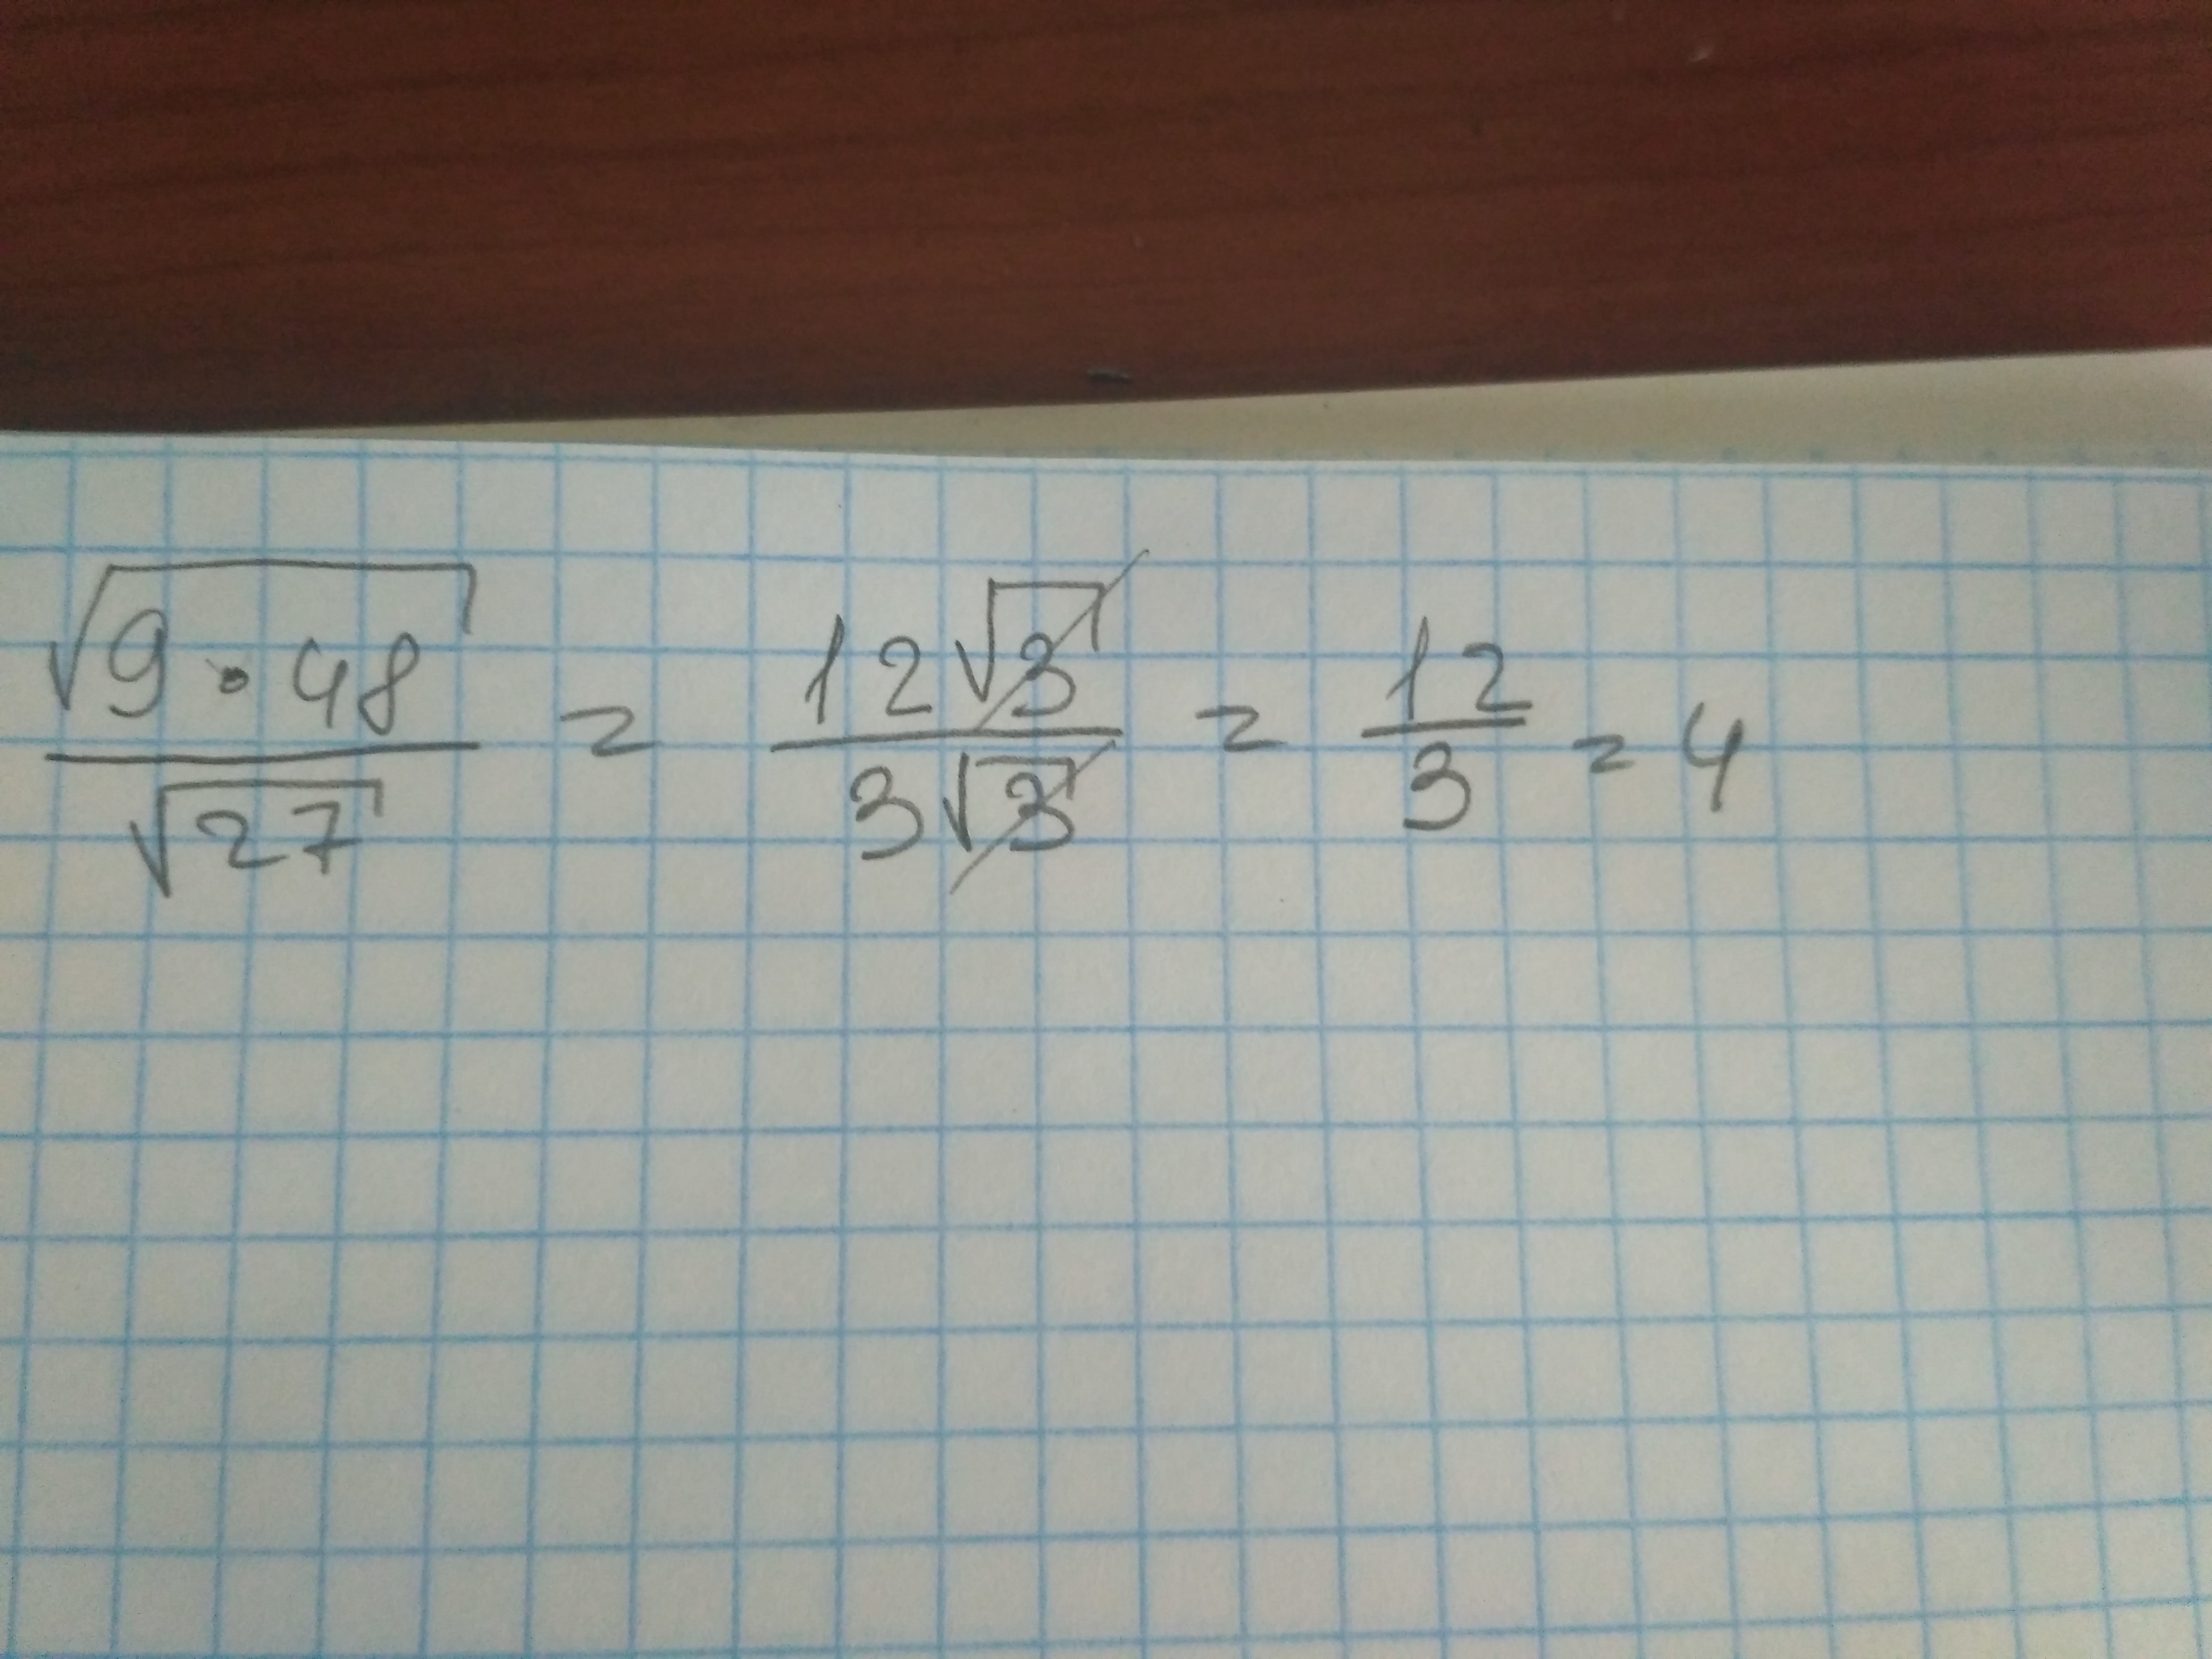 √(9 · 48) / √27 = 12√3 / 3√3 = 12 / 3 = 4